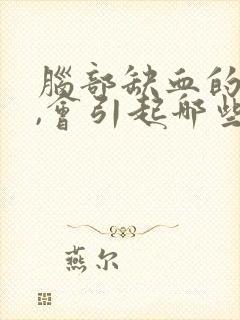 腦部缺血的
,會引起哪些
燕尔